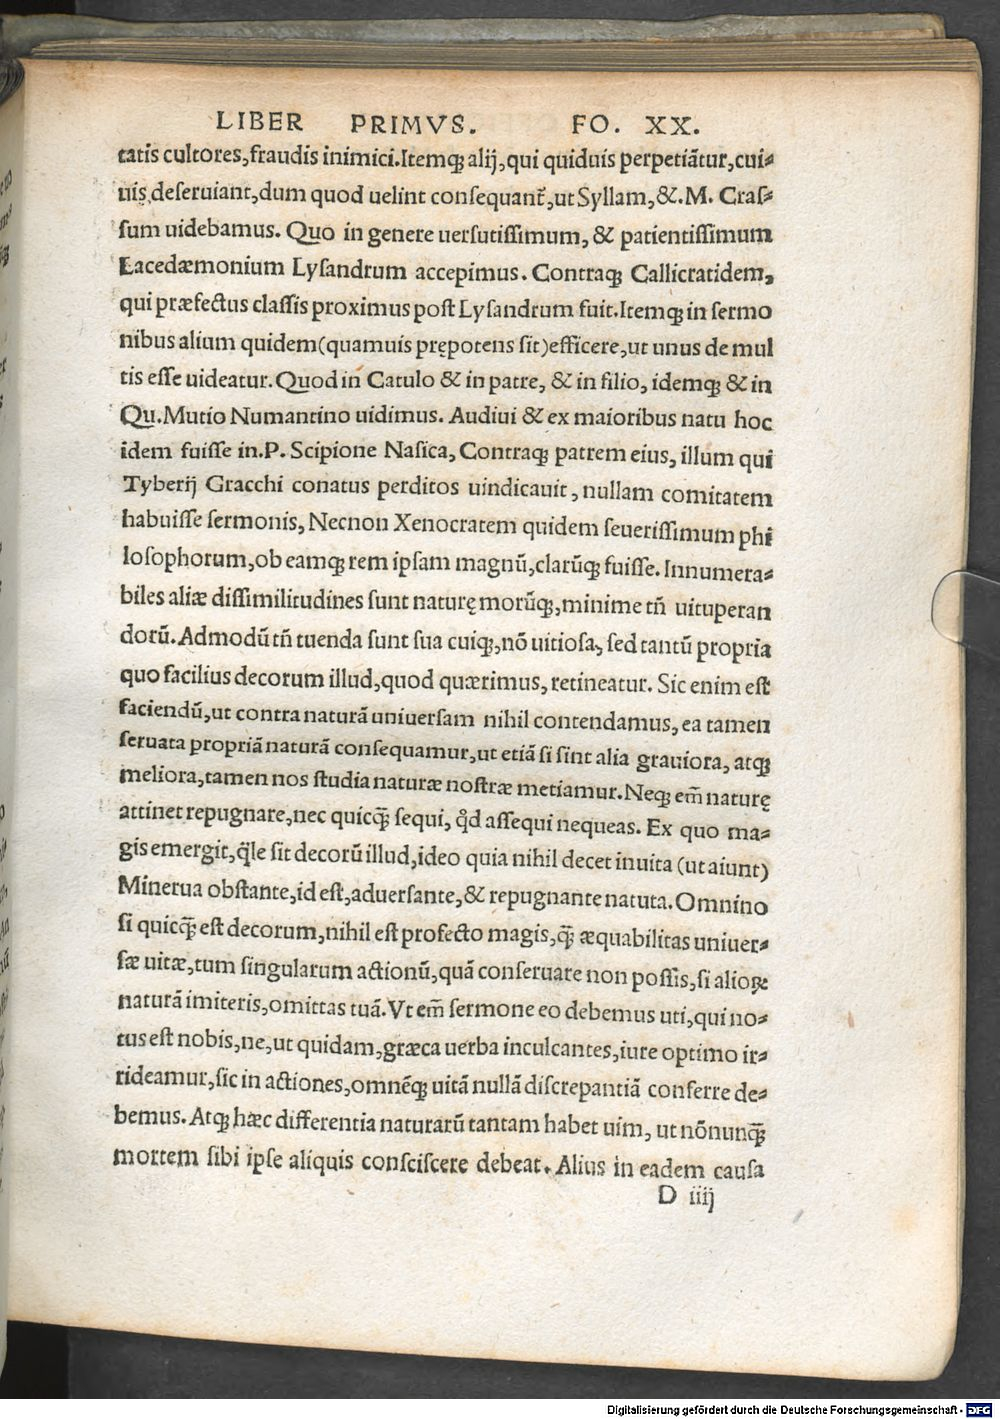 LIBER PRIMVS. FO. XX.
tatis cultores,fraudis inimici.Itemqꝫ alij,qui quiduis perpetiãtur,cui⸗
uis deseruiant,dum quod uelint consequant᷑,ut Syllam,&.M. Cras⸗
sum uidebamus. Quo in genere uersutissimum, & patientissimum
Lacedæmonium Lysandrum accepimus. Contraqꝫ Callicratidem,
qui præfectus classis proximus post Lysandrum fuit.Itemqꝫ in sermo
nibus alium quidem(quamuis prępotens sit)efficere,ut unus de mul
tis esse uideatur.Quod in Catulo & in patre, & in filio, idemqꝫ & in
Qu.Mutio Numantino uidimus. Audiui & ex maioribus natu hoc
idem fuisse in.P. Scipione Nasica, Contraqꝫ patrem eius, illum qui
Tyberij Gracchi conatus perditos uindicauit, nullam comitatem
habuisse sermonis, Necnon Xenocratem quidem seuerissimum phi
losophorum,ob eamqꝫ rem ipsam magnũ,clarũqꝫ fuisse. Innumera⸗
biles aliæ dissimilitudines sunt naturę morũqꝫ,minime tñ uituperan
dorũ.Admodũ tñ tuenda sunt sua cuiqꝫ,nõ uitiosa, sed tantũ propria
quo facilius decorum illud,quod quærimus, retineatur. Sic enim est
faciendũ,ut contra naturã uniuersam nihil contendamus, ea tamen
seruata propriã naturã consequamur,ut etiã si sint alia grauiora, atqꝫ
meliora,tamen nos studia naturæ nostræ metiamur.Neqꝫ em̃ naturę
attinet repugnare,nec quicq̃ sequi, qd̃ assequi nequeas. Ex quo ma⸗
gis emergit,q̃le sit decorũ illud,ideo quia nihil decet inuita (ut aiunt)
Minerua obstante,id est,aduersante,& repugnante natuta.Omnino
si quicq̃ est decorum,nihil est profecto magis,q̃ æquabilitas uniuer⸗
sæ uitæ,tum singularum actionũ,quã conseruare non possis,si alioꝝ
naturã imiteris,omittas tuã.Vt em̃ sermone eo debemus uti,qui no⸗
tus est nobis,ne,ut quidam,græca uerba inculcantes,iure optimo ir⸗
rideamur,sic in actiones,omnẽqꝫ uitã nullã discrepantiã conferre de⸗
bemus.Atqꝫ hæc differentia naturarũ tantam habet uim, ut nõnunq̃
mortem sibi ipse aliquis consciscere debeat. Alius in eadem causa
D iiij
Digitalisierung gefördert durch die Deutsche Forschungsgemeinschaft - DFG